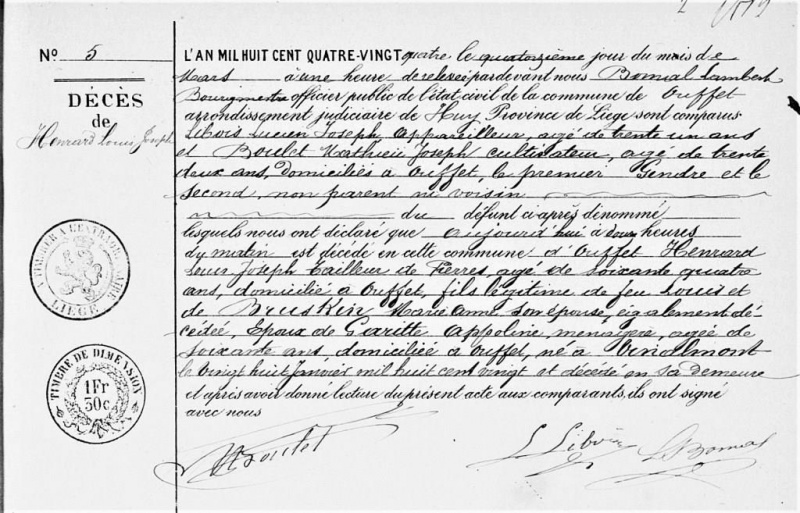 Nº 5
DÉCÈS
de
Henrard Louis Joseph
TIMBRE A L'EXTRAORDINAIRE
LIEGE
TIMBRE DE DIMENSION
1 Fr
30 c
L'AN MIL HUIT CENT QUATRE-VINGT quatre le quatorzième jour du mois de
Mars à une heure de relevée pardevant nous Bonmal Lambert
Bourgmestre officier public de l'état civil de la commune de Ouffet
arrondissement judiciaire de Huy Province de Liege sont comparus
Libois Lucien Joseph, Appareilleur, agé de trente un ans
et Boulet Mathieu Joseph cultivateur, agé de trente
deux ans, Domiciliés à Ouffet, le premier Gendre et le
second, non parent ni voisin
du défunt ci après dénommé
lesquels nous ont déclaré que aujourd'hui à heures
du matin est décédé en cette commune d'Ouffet Henrard
Louis Joseph tailleur de Pierres, agé de soixante quatre
ans, domicilié à Ouffet, fils légitime de feu Louis et
de Bruskin Marie Anne son épouse, également dé-
cédée, Epoux de Garitte Appolinie, menagère, agée de
soixante ans, domiciliée à Ouffet, né à Vinalmont
le vingt huit janvier mil huit cent vingt et décédé en sa demeure
et après avoir donné lecture du présent acte aux comparants, ils ont signé
avec nous
Boulet L Libois L Bonmal